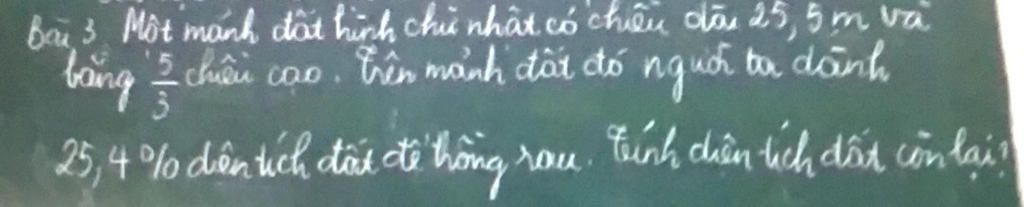 Bài 3 Một mảnh đất hình chữ nhật có chiều dài 25,5m và
bằng 5/3 chiều cao. Trên mảnh đất đó người ta dành
25,4% diện tích đất để trồng rau. Tính diện tích đất còn lại?